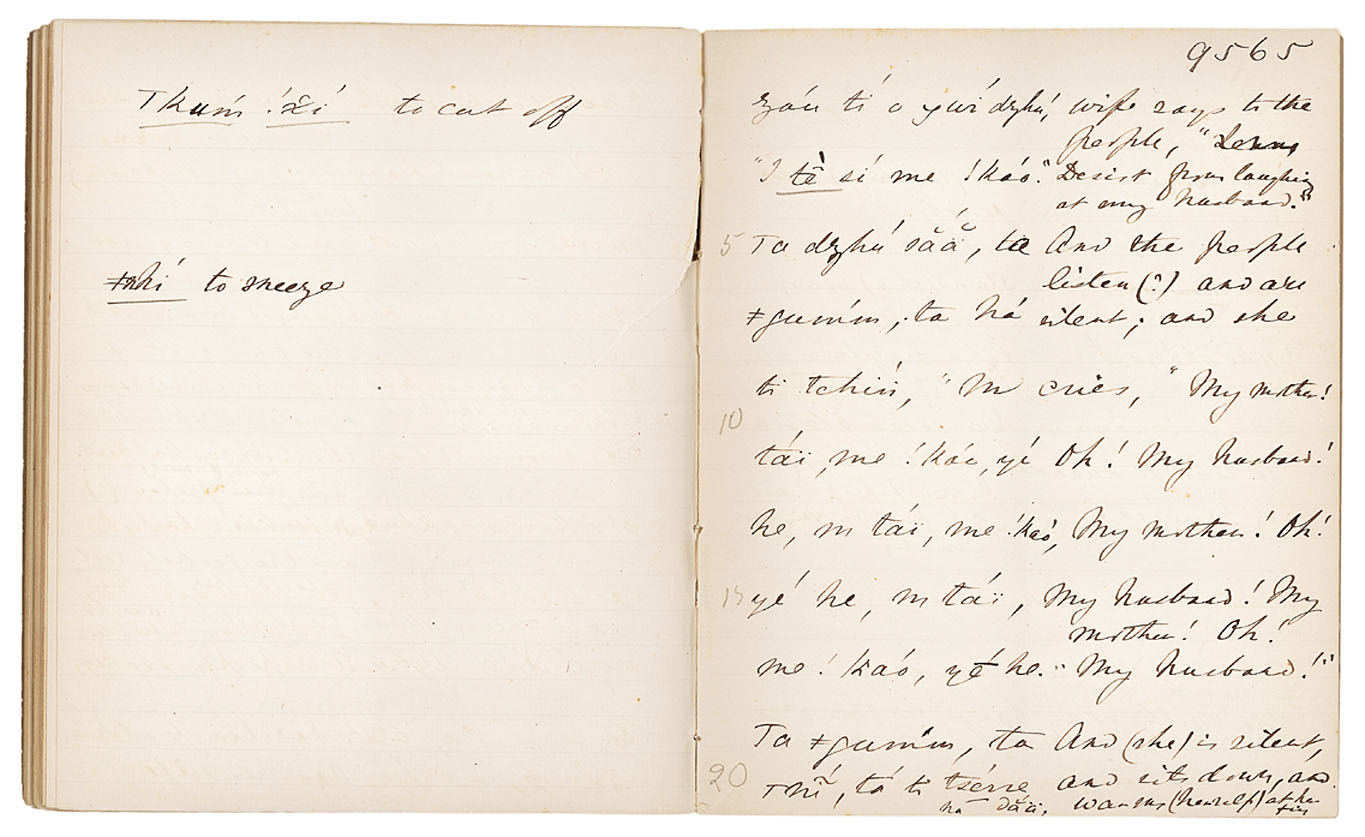 Tkuḿ !žĭ́ to cut off
ǂnhí to sneeze
9565
záu ti o gwí dzhú, wife says to the
people, "
"I tè sí me !kaó." Desist from laughing
at my husband."
5 Ta dzhú sắắ, ta And the people
listen (?) and are
ǂgumm̄, ta há silent; and she
ti tchiń, "M cries, "My mother!
10
táï, me !káo, yé Oh! My husband!
he, m táï, me !kaó, My mother! Oh!
15 yé he, m táï, My husband! My
mother! Oh!
me !kaó, yé he." My husband!"
Ta ǂgumm̄, ta And (she) is silent,
20 and sits down, and
warms (herself) at her
fire